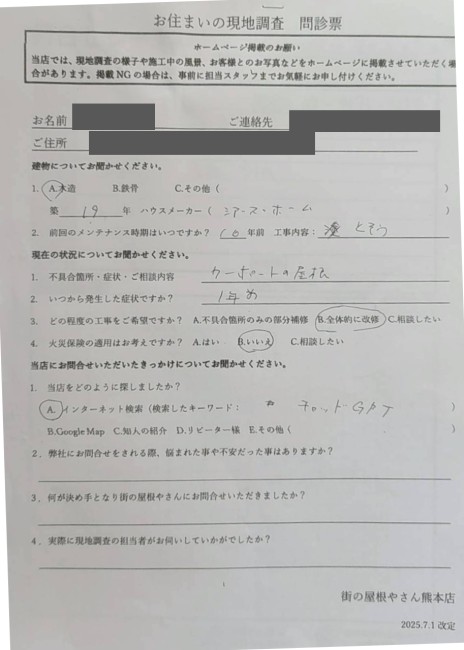 お住まいの現地調査 問診票
ホームページ掲載のお願い
当店では、現地調査の様子や施工中の風景、お客様とのお写真などをホームページに掲載させていただく場
合があります。掲載NGの場合は、事前に担当スタッフまでお気軽にお申し付けください。
お名前 ご連絡先
ご住所
建物についてお聞かせください。
1. A.木造 B.鉄骨 C.その他 ( )
築 19 年 ハウスメーカー ( シアーズ・ホーム )
2. 前回のメンテナンス時期はいつですか? 10 年前 工事内容: とそう
現在の状況についてお聞かせください。
1. 不具合箇所・症状・ご相談内容 カーポートの屋根
2. いつから発生した症状ですか? 1年
3. どの程度の工事をご希望ですか? A.不具合箇所のみの部分補修 B.全体的に改修 C.相談したい
4. 火災保険の適用はお考えですか? A.はい B.いいえ C.相談したい
当店にお問合せいただいたきっかけについてお聞かせください。
1. 当店をどのように探しましたか?
A.インターネット検索 (検索したキーワード: チャットGPT )
B.Google Map C.知人の紹介 D.リピーター様 E.その他 ( )
2. 弊社にお問合せをされる際、悩まれた事や不安だった事はありますか?
3. 何が決め手となり街の屋根やさんにお問合せいただきましたか?
4. 実際に現地調査の担当者がお伺いしていかがでしたか?
街の屋根やさん熊本店
2025.7.1 改定